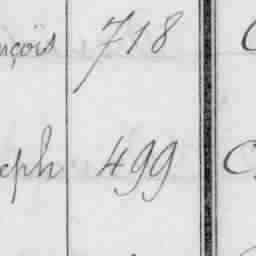 nçois 718 C
eph 499 C